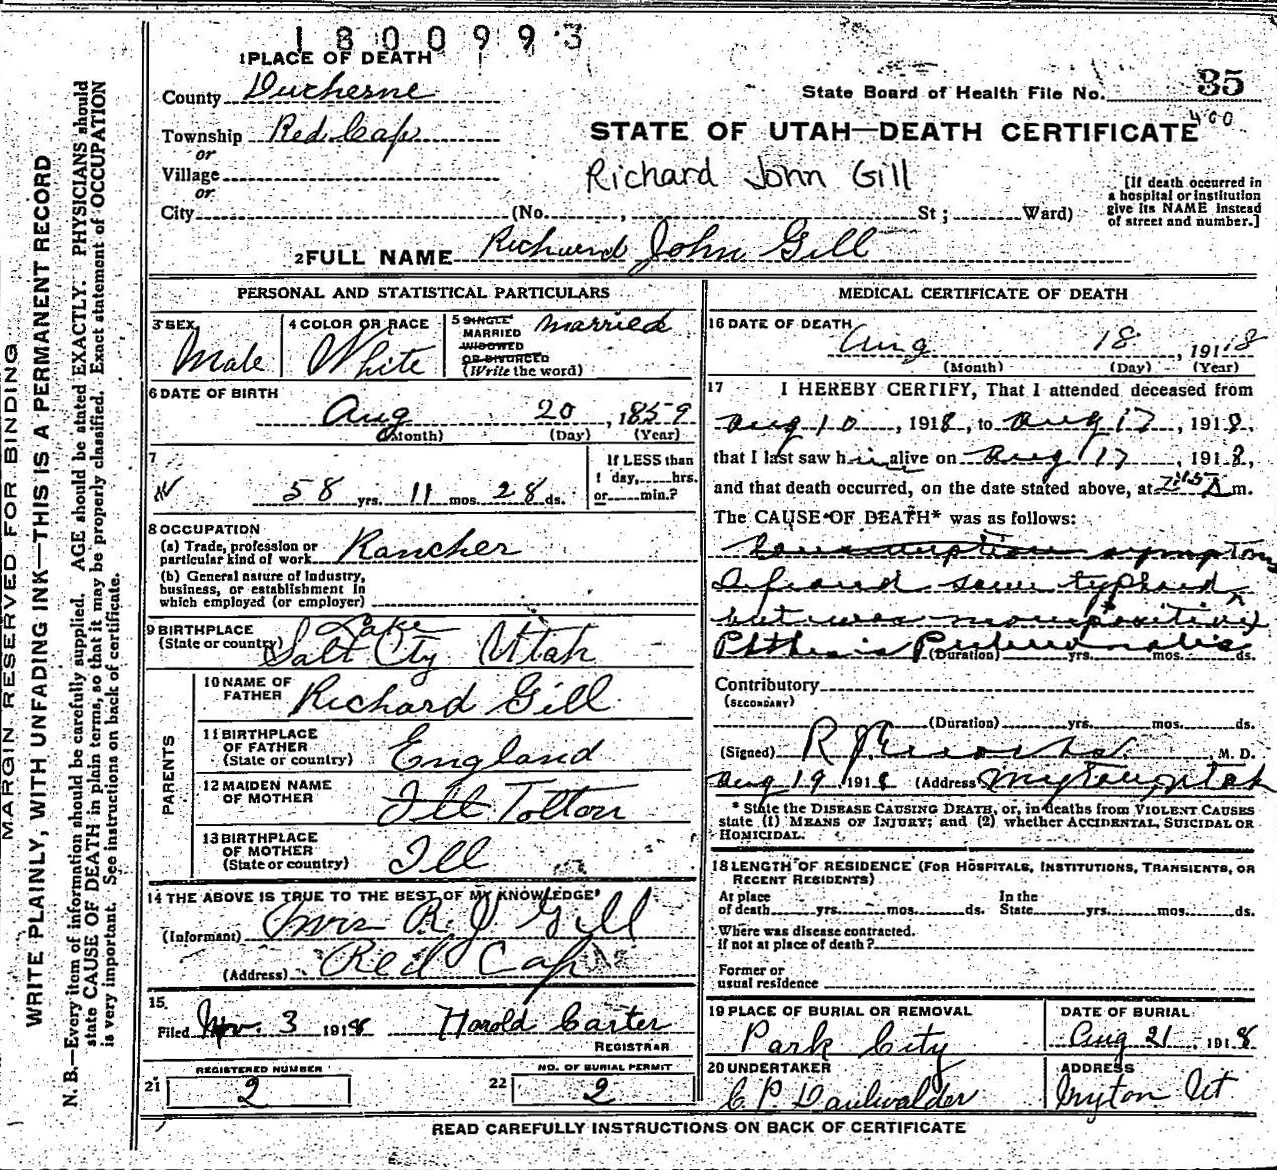 1800993
1 PLACE OF DEATH
County Duchesne
State Board of Health File No. 35
Township Red Cap
400
or
STATE OF UTAH—DEATH CERTIFICATE
Village
Richard John Gill
or
City (No. , St ; Ward)
[If death occurred in
a hospital or institution
give its NAME instead
of street and number.]
2 FULL NAME Richard John Gill
PERSONAL AND STATISTICAL PARTICULARS
3 SEX
Male
4 COLOR OR RACE
White
5 SINGLE
MARRIED
WIDOWED
OR DIVORCED
(Write the word)
Married
6 DATE OF BIRTH
Aug 20, 1859
(Month) (Day) (Year)
7
58 yrs. 11 mos. 28 ds.
If LESS than
1 day, hrs.
or min.?
8 OCCUPATION
(a) Trade, profession or
particular kind of work Rancher
(b) General nature of industry,
business, or establishment in
which employed (or employer)
9 BIRTHPLACE
(State or country) Salt Lake Cty Utah
PARENTS
10 NAME OF
FATHER Richard Gill
11 BIRTHPLACE
OF FATHER
(State or country) England
12 MAIDEN NAME
OF MOTHER Ill Tolton
13 BIRTHPLACE
OF MOTHER
(State or country) Ill
14 THE ABOVE IS TRUE TO THE BEST OF MY KNOWLEDGE
(Informant) Mrs R J Gill
(Address) Red Cap
15.
Filed Nov. 3 1918 Harold Carter
REGISTRAR
21 REGISTERED NUMBER
2
22 NO. OF BURIAL PERMIT
2
MEDICAL CERTIFICATE OF DEATH
16 DATE OF DEATH
Aug 18, 1918
(Month) (Day) (Year)
17 I HEREBY CERTIFY, That I attended deceased from
Aug 10, 1918, to Aug 17, 1918,
that I last saw him alive on Aug 17, 1918,
and that death occurred, on the date stated above, at A m.
The CAUSE OF DEATH* was as follows:
symptoms
typhoid
but was
Phthisis Pulmonalis
(Duration) yrs. mos. ds.
Contributory
(SECONDARY)
(Duration) yrs. mos. ds.
(Signed) R. J. M. D.
Aug 19 1918 (Address Myton, Utah
* State the DISEASE CAUSING DEATH, or, in deaths from VIOLENT CAUSES
state (1) MEANS OF INJURY; and (2) whether ACCIDENTAL, SUICIDAL OR
HOMICIDAL.
18 LENGTH OF RESIDENCE (FOR HOSPITALS, INSTITUTIONS, TRANSIENTS, OR
RECENT RESIDENTS)
At place
of death yrs. mos. ds.
In the
State yrs. mos. ds.
Where was disease contracted.
if not at place of death?
Former or
usual residence
19 PLACE OF BURIAL OR REMOVAL
Park City
DATE OF BURIAL
Aug 21, 1918
20 UNDERTAKER
C P Daulwalder
ADDRESS
Myton Ut
READ CAREFULLY INSTRUCTIONS ON BACK OF CERTIFICATE
MARGIN RESERVED FOR BINDING
WRITE PLAINLY, WITH UNFADING INK—THIS IS A PERMANENT RECORD
N. B.—Every item of information should be carefully supplied. AGE should be stated EXACTLY. PHYSICIANS should
state CAUSE OF DEATH in plain terms, so that it may be properly classified. Exact statement of OCCUPATION
is very important. See instructions on back of certificate.